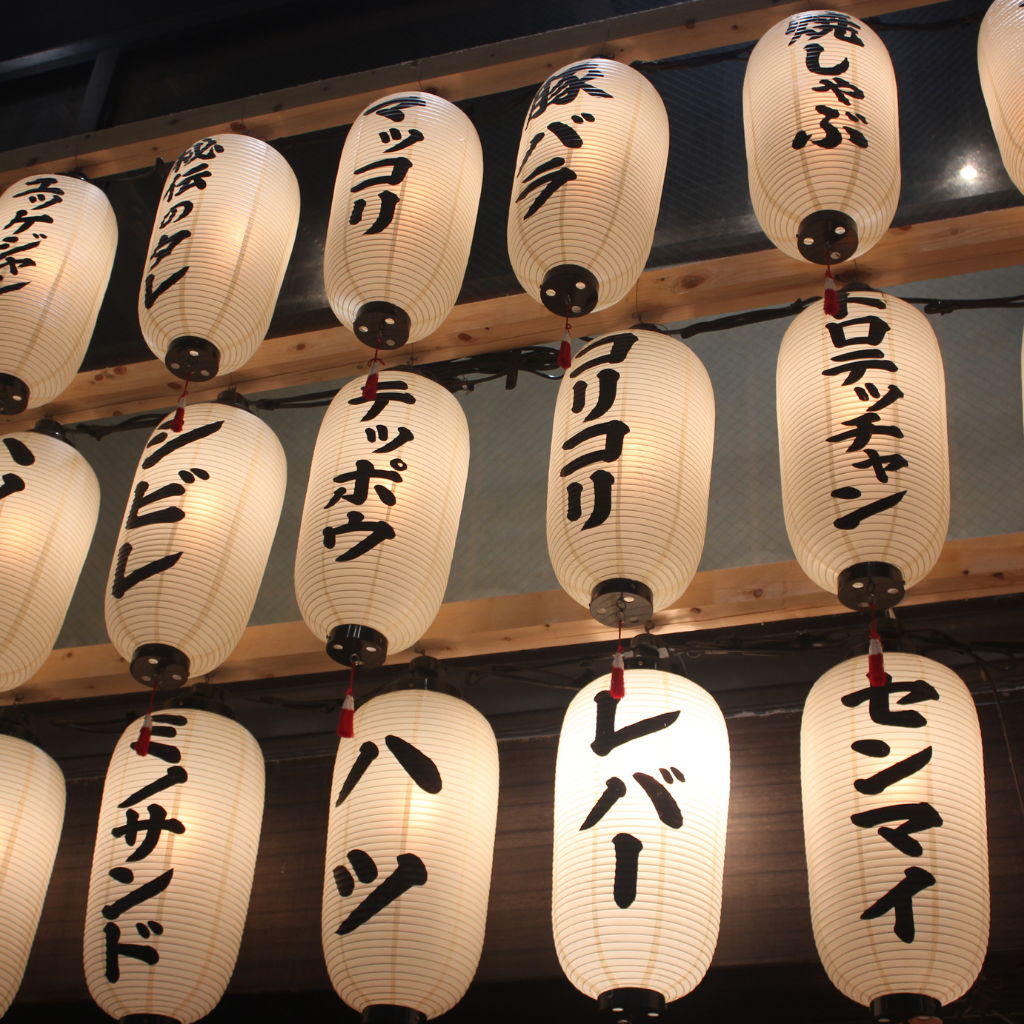 ユッケジャン
秘伝のタレ
マッコリ
豚バラ
焼しゃぶ
シビレ
テッポウ
コリコリ
トロテッチャン
ミノサンド
ハツ
レバー
センマイ